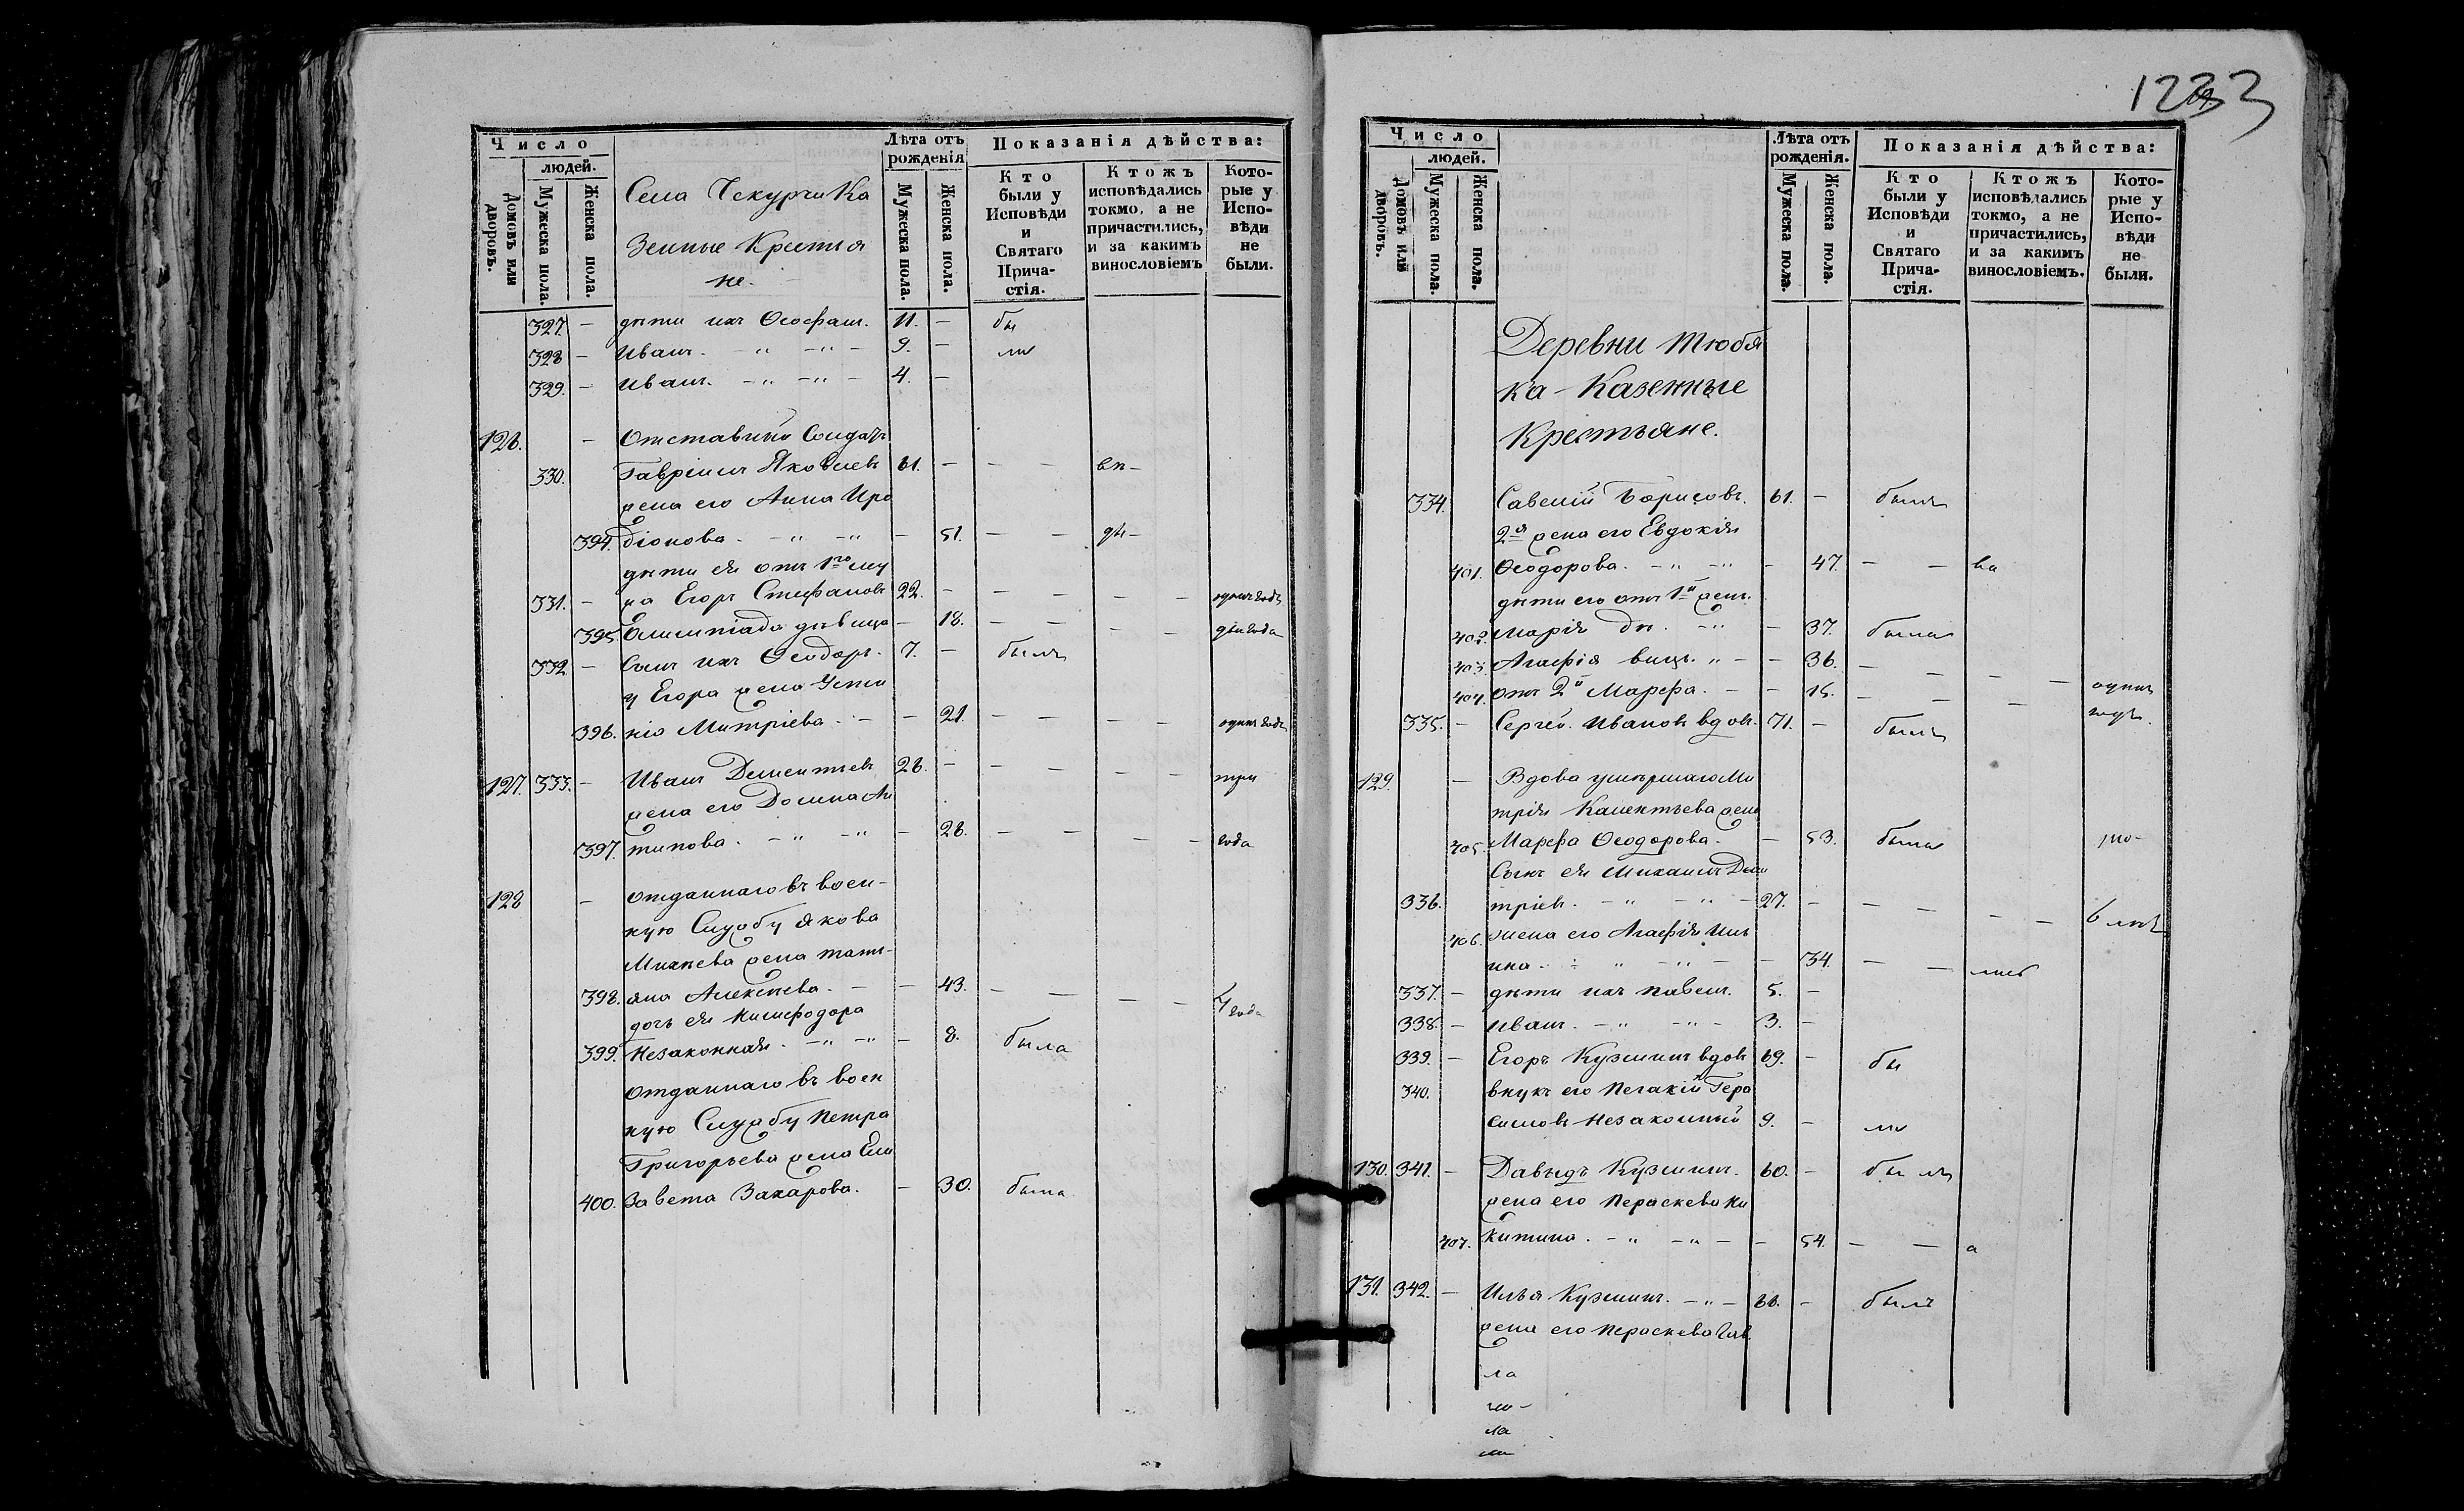 Число
людей.
Домовъ или дворовъ.
Мужеска пола.
Женска пола.
Села Чекурчи Ка
зенные Крестья
не.
Лѣта отъ рожденія
Мужеска пола.
Женска пола.
Показанія дѣйства:
Кто были у Исповѣди и Святаго Прича-стія.
Ктожъ исповѣдались токмо, а не причастились, и за какимъ винословіемъ
Кото-рые у Испо-вѣди не были.
327. — дѣти ихъ Ѳеофанъ. 11. — бы
328 — Иванъ. - „ - „ - 9. — ли
329. — Иванъ. - „ - „ - 4. —
126. — Отставный Солдатъ
330. Гавріилъ Яковлевъ 61. — — —
жена его Анна Иро
394. діонова. - „ - „ — 51. — —
дѣти ея отъ 1го му
331. — жа Егоръ Стефановъ 22. — — — — — одинъ годъ
395. Олимпіада дѣвица — 18. — — — — два года
332 — Сынъ ихъ Ѳеодоръ. 7. — былъ
у Егора жена Усти
396. нія Митріева. — — 21. — — — — одинъ годъ
127. 333. — Иванъ Дементьевъ 28. — — — — — три
жена его Домна Ан
397. типова. - „ - „ — 28. — — — — года
128 — отданнаго въ воен-
ную Службу Якова
Михѣева жена татъ-
398. яна Алексѣева. — — 43. — — — — 4 года
дочь ея Никифодора
399. Незаконная. - „ - „ — 8. была
отданнаго въ воен
ную Службу Петра
Григорьева жена Ели
400. Завета Захарова. — 30. была
1233
Число
людей.
Домовъ или дворовъ.
Мужеска пола.
Женска пола.
Лѣта отъ рожденія.
Мужеска пола.
Женска пола.
Показанія дѣйства:
Кто были у Исповѣди и Святаго Прича-стія.
Ктожъ исповѣдались токмо, а не причастились, и за какимъ винословіемъ.
Кото-рые у Испо-вѣди не были.
Деревни Тюбя
ка - Казенные
Крестьяне.
334. Савелій Борисовъ. 61. — былъ
2я жена его Евдокія
401. Ѳеодорова. - „ - „ — 47. — —
дѣти его отъ 1й жены
402. Марія дѣ. - „ — 37. была
403. Агафія вицы. „ — — 36. — — — —
404. отъ 2й Марѳа. — — 15. — — — одинъ
335. — Сергей Ивановъ вдовъ. 71. — былъ годъ.
129. — Вдова умершаго Ми
трія Климентьева жена
405. Марѳа Ѳеодорова. — 53. была
Сынъ ея Михаилъ Дми
336. тріевъ. - „ - „ — 27. — — — — — 6 лѣтъ
406. жена его Агафія Иль
ина. - „ - „ — — 34. — —
337. — дѣти ихъ Павелъ. 5. —
338. — Иванъ. - „ - „ - 3. —
339. — Егоръ Кузминъ вдовъ 69. — бы
340. внукъ его Гера
симовъ Незаконный 9. — ли
130. 341. — Давыдъ Кузминъ. 60. — былъ
жена его Параскева Ни
407. китина. - „ - „ — — 54. — — а
131. 342. — Илья Кузминъ. - „ - 66. — былъ
жена его Параскева Гав.